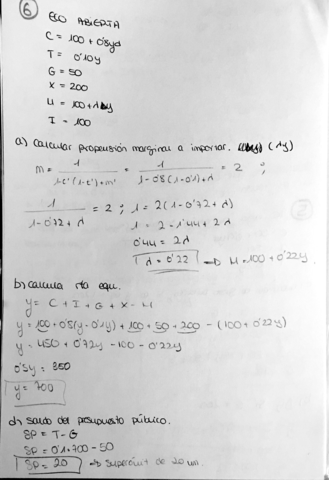 6 ECO ABIERTA
C = 100 + 0'8yd
T = 0'10y
G = 50
X = 200
M = 100 + λy
I = 100
a) Calcular propensión marginal a importar. (λy)
m = 1 / 1-c'(1-t')+m' = 1 / 1-0'8(1-0'1)+λ = 2 ;
1 / 1-0'72+λ = 2 ; 1 = 2(1-0'72+λ)
1 = 2-1'44+2λ
0'44 = 2λ
λ = 0'22 => M = 100 + 0'22y.
b) Calcula rta equ.
y = C + I + G + X - M
y = 100 + 0'8(y-0'1y) + 100 + 50 + 200 - (100 + 0'22y)
y = 450 + 0'72y - 100 - 0'22y
0'5y = 350
y = 700
d) Saldo del presupuesto público.
SP = T - G
SP = 0'1·700 - 50
SP = 20 => Superávit de 20 um.